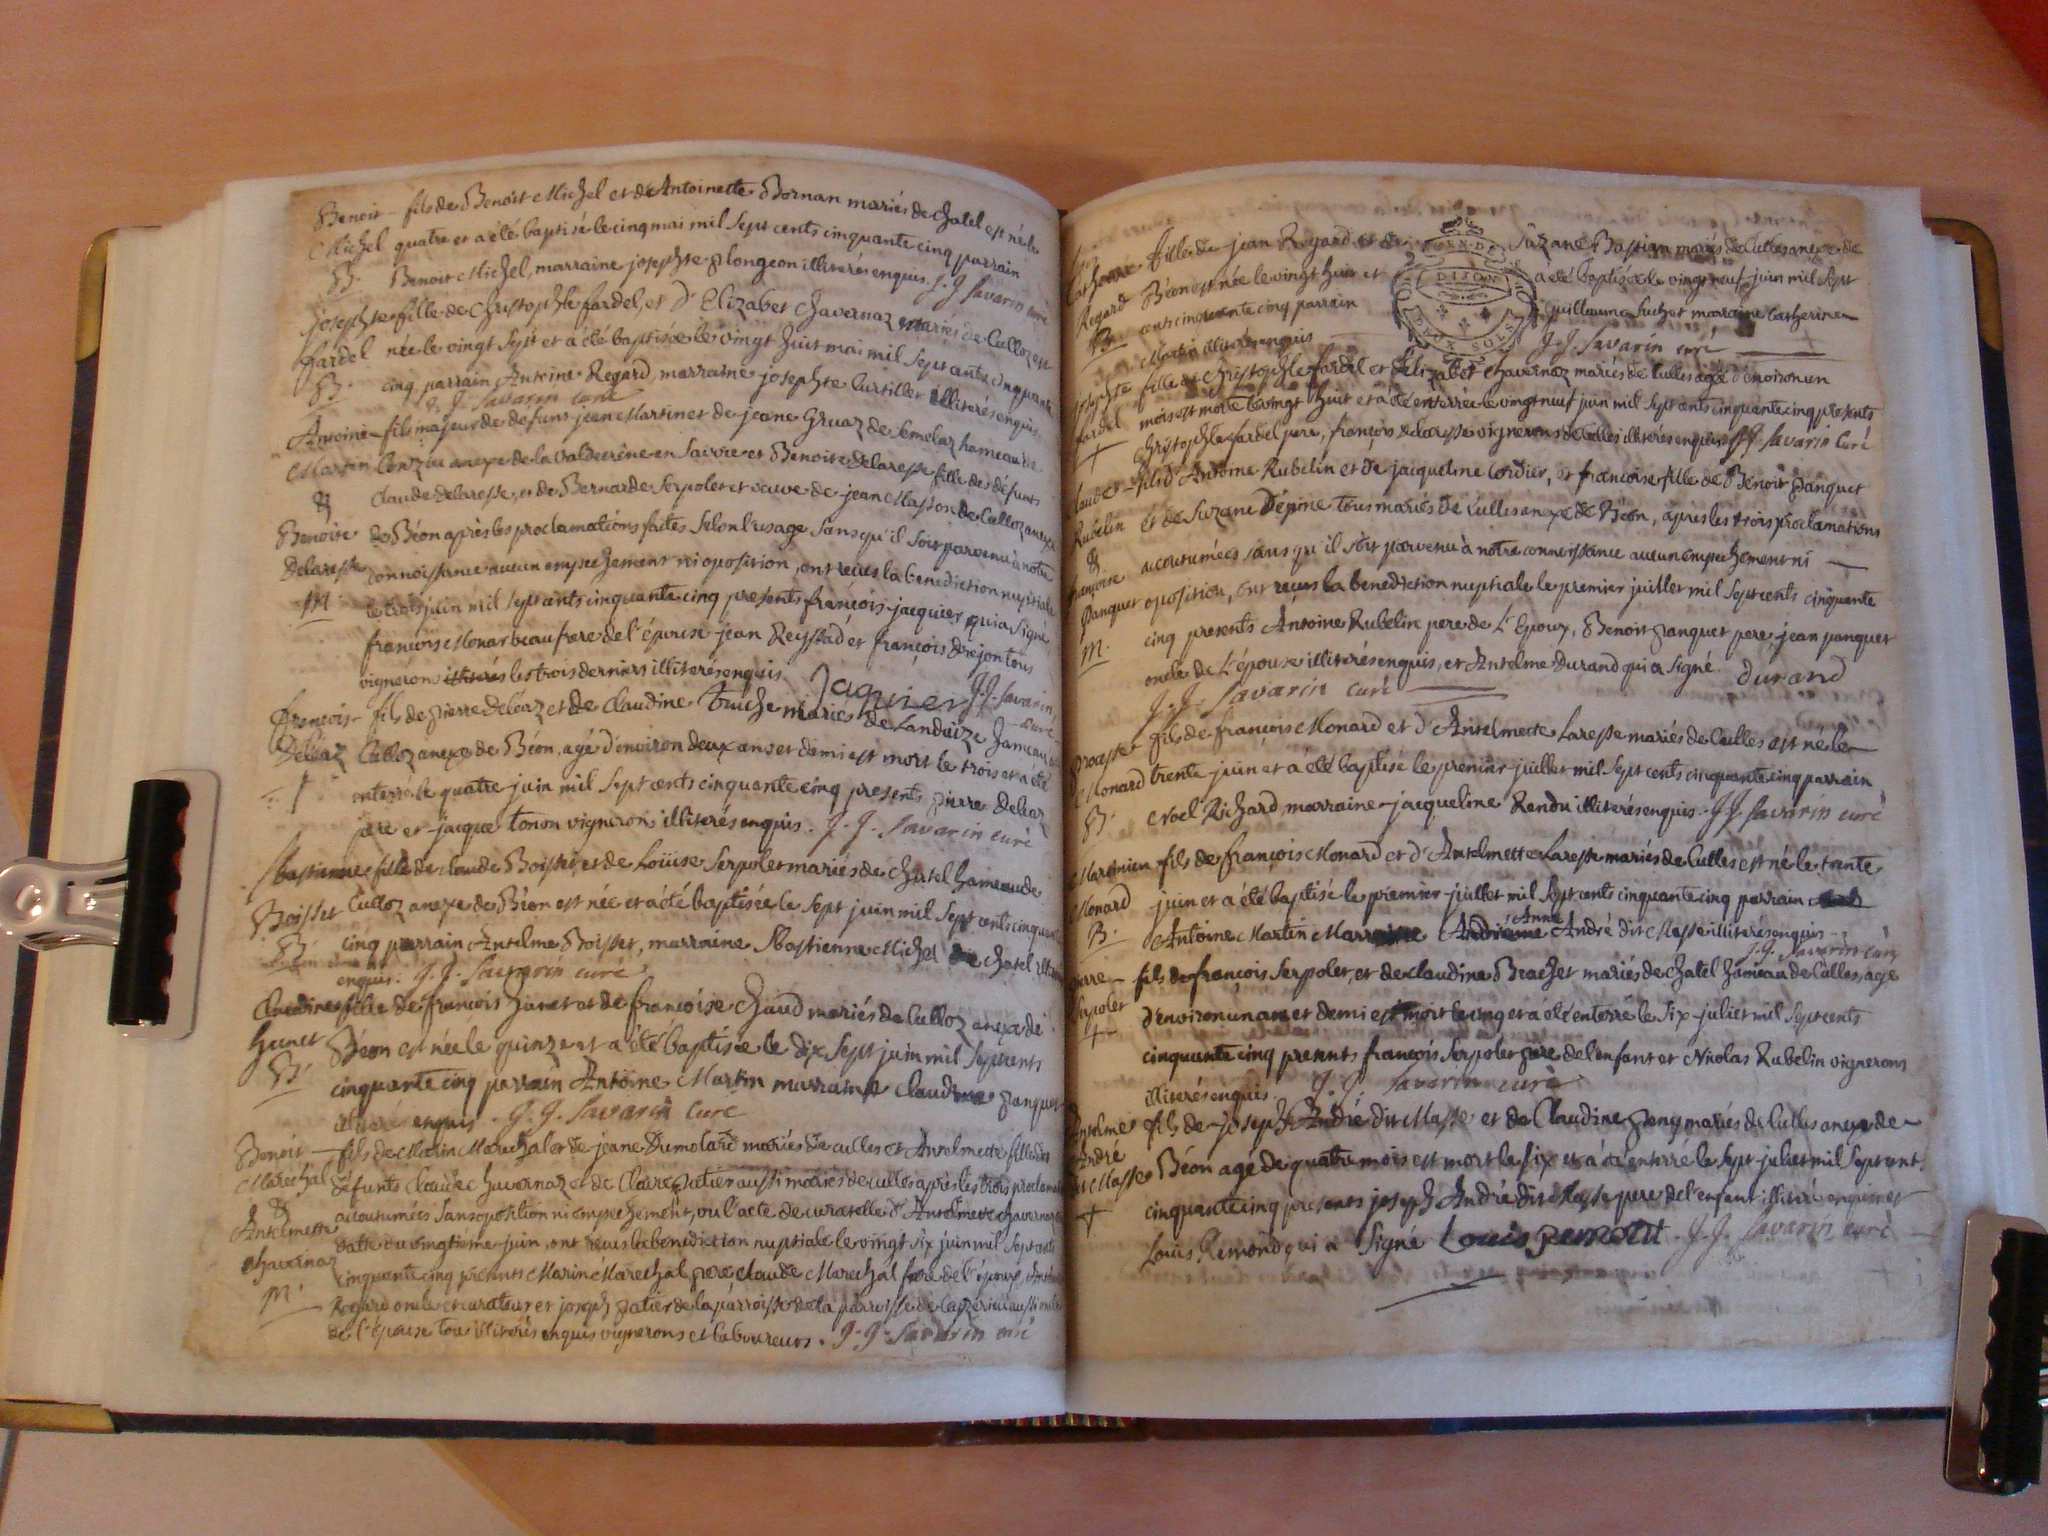 Benoit - fils de Benoit Michel et d'Antoinette Bornan mariés de chatel est né le
Michel quatre et a été baptisé le cinq mai mil sept cents cinquante cinq parrain
B. Benoit Michel, marraine josephte plongeon illiterés enquis. J. J. Savarin curé
josephte fille de Christophle fardel, et d'Elizabet Chavernaz mariés de Culloz est
fardel née le vingt sept et a été baptisée le vingt huit mai mil sept cents cinquante
B. cinq parrain Antoine Regard, marraine josephte Curtillet illiterés enquis.
J. J. Savarin curé
Antoine - fils majeur de defunt jean Martin et de jeane Gruaz de hameau de
Martin anexe de la en Savoie et Benoite Delaresse fille des défunts
& Claude Delaresse, et de Bernarde Serpolet et veuve de jean Masson de Culloz anexe
Benoite de Béon après les proclamations faites selon l'usage sans qu'il soit parvenu à notre
Delaresse connoissance aucun empechement ni oposition, ont reçus la benediction nuptiale
M. le trois juin mil sept cents cinquante cinq presents françois jacquier qui a signé
françois Monar beaufrere de l'épouse jean Reyssad et françois tous
vignerons illiterés les trois derniers illiterés enquis. Jaquier J. J. Savarin curé
françois - fils de pierre Deléaz et de Claudine Truche mariés de Landaize hameau de
Deléaz Culloz anexe de Béon, agé d'environ deux ans et demi est mort le trois et a été
† enterré le quatre juin mil sept cents cinquante cinq presents pierre Deléaz
pere et jacque tonon vignerons illiterés enquis. J. J. Savarin curé
Sbastienne fille de claude Boisset et de Loüise Serpolet mariés de chatel hameau de
Boisset Culloz anexe de Béon est née et a été baptisée le sept juin mil sept cents cinquante
B. cinq parrain Antelme Boisset, marraine Sbastienne Michel de chatel
enquis. J. J. Savarin curé
Claudine fille de françois hunet et de françoise Chaud mariés de Culloz anexe de
hunet Béon est née le quinze et a été baptisée le dix sept juin mil sept cents
B. cinquante cinq parrain Antoine Martin marraine Claudine panquet
enquis. J. J. Savarin curé
Benoit - fils de Marin Marechal et de jeane Dumolard mariés de culles et Antelmette fille des
Marechal défunts Claude Chavernaz et de Claire patier aussi mariés de culles après les trois proclamations
& acoutumées sans oposition ni empechement, vu l'acte de curatelle d'Antelmette chavernaz
Antelmette datté du vingtieme juin, ont reçus la benediction nuptiale le vingt six juin mil sept cents
Chavernaz cinquante cinq presents Marin Marechal pere, claude Marechal frere de l'époux,
M. Regard oncle et curateur et joseph patier de la parroisse de la parroisse de aussi oncle
de l'épouse tous illiterés enquis vignerons et laboureurs. J. J. Savarin curé
Catherine fille de jean Regard et de Suzane Bastian mariés de Culles anexe de
Regard Béon est née le vingt huit et a été baptisée le vingt neuf juin mil sept
B. cents cinquante cinq parrain Guillaume Suchet marraine Catherine
Martin illiterés enquis J. J. Savarin curé
DIJON
josephte fille de Christophle fardel et d'Elizabet Chavernaz mariés de Culles agée d'environ un
fardel mois est morte le vingt huit et a été enterrée le vingt neuf juin mil sept cents cinquante cinq presents
† Christophle fardel pere, françois delaresse vignerons de Culles illiterés enquis J. J. Savarin Curé
Claude - fils d'Antoine Rubelin et de jacqueline Cordier, et françoise fille de Benoit panquet
Rubelin et de Suzane Dépine tous mariés de Culles anexe de Béon, après les trois proclamations
& acoutumées sans qu'il soit parvenu à notre connoissance aucun empechement ni
françoise oposition, ont reçus la benediction nuptiale le premier juillet mil sept cents cinquante
panquet cinq presents Antoine Rubelin pere de l'Epoux, Benoit panquet pere, jean panquet
M. oncle de l'épouse illiterés enquis, et Antelme Durand qui a signé. durand
J. J. Savarin curé
fils de françois Monard et d'Antelmette Laresse mariés de Culles est né le
Monard trente juin et a été baptisé le premier juillet mil sept cents cinquante cinq parrain
B. Noel Richard marraine jacqueline Rendu illiterés enquis. J. J. Savarin curé
fils de françois Monard et d'Antelmette Laresse mariés de Culles est né le trente
Monard juin et a été baptisé le premier juillet mil sept cents cinquante cinq parrain
B. Antoine Martin Marraine Anne André dit Masse illiterés enquis.
J. J. Savarin curé
pierre - fils de françois Serpolet, et de claudine Brachet mariés de chatel hameau de Culles, agé
Serpolet d'environ un an et demi est mort le cinq et a été enterré le six juillet mil sept cents
† cinquante cinq presents françois Serpolet pere de l'enfant et Nicolas Rubelin vignerons
illiterés enquis. J. J. Savarin curé
Antelme fils de joseph André dit Masse et de Claudine peng mariés de Culles anexe de
André Béon agé de quatre mois est mort le six et a été enterré le sept juillet mil sept cents
dit Masse cinquante cinq presents joseph André dit Masse pere de l'enfant illiteré enquis et
† Louis Remond qui a signé Louis Remond. J. J. Savarin curé